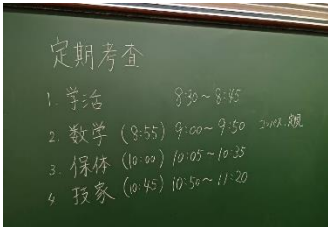 定期考査
1. 学活 8:30～8:45
2. 数学 (8:55) 9:00～9:50 コンパス、定規
3. 保体 (10:00) 10:05～10:35
4 技家 (10:45) 10:50～11:20